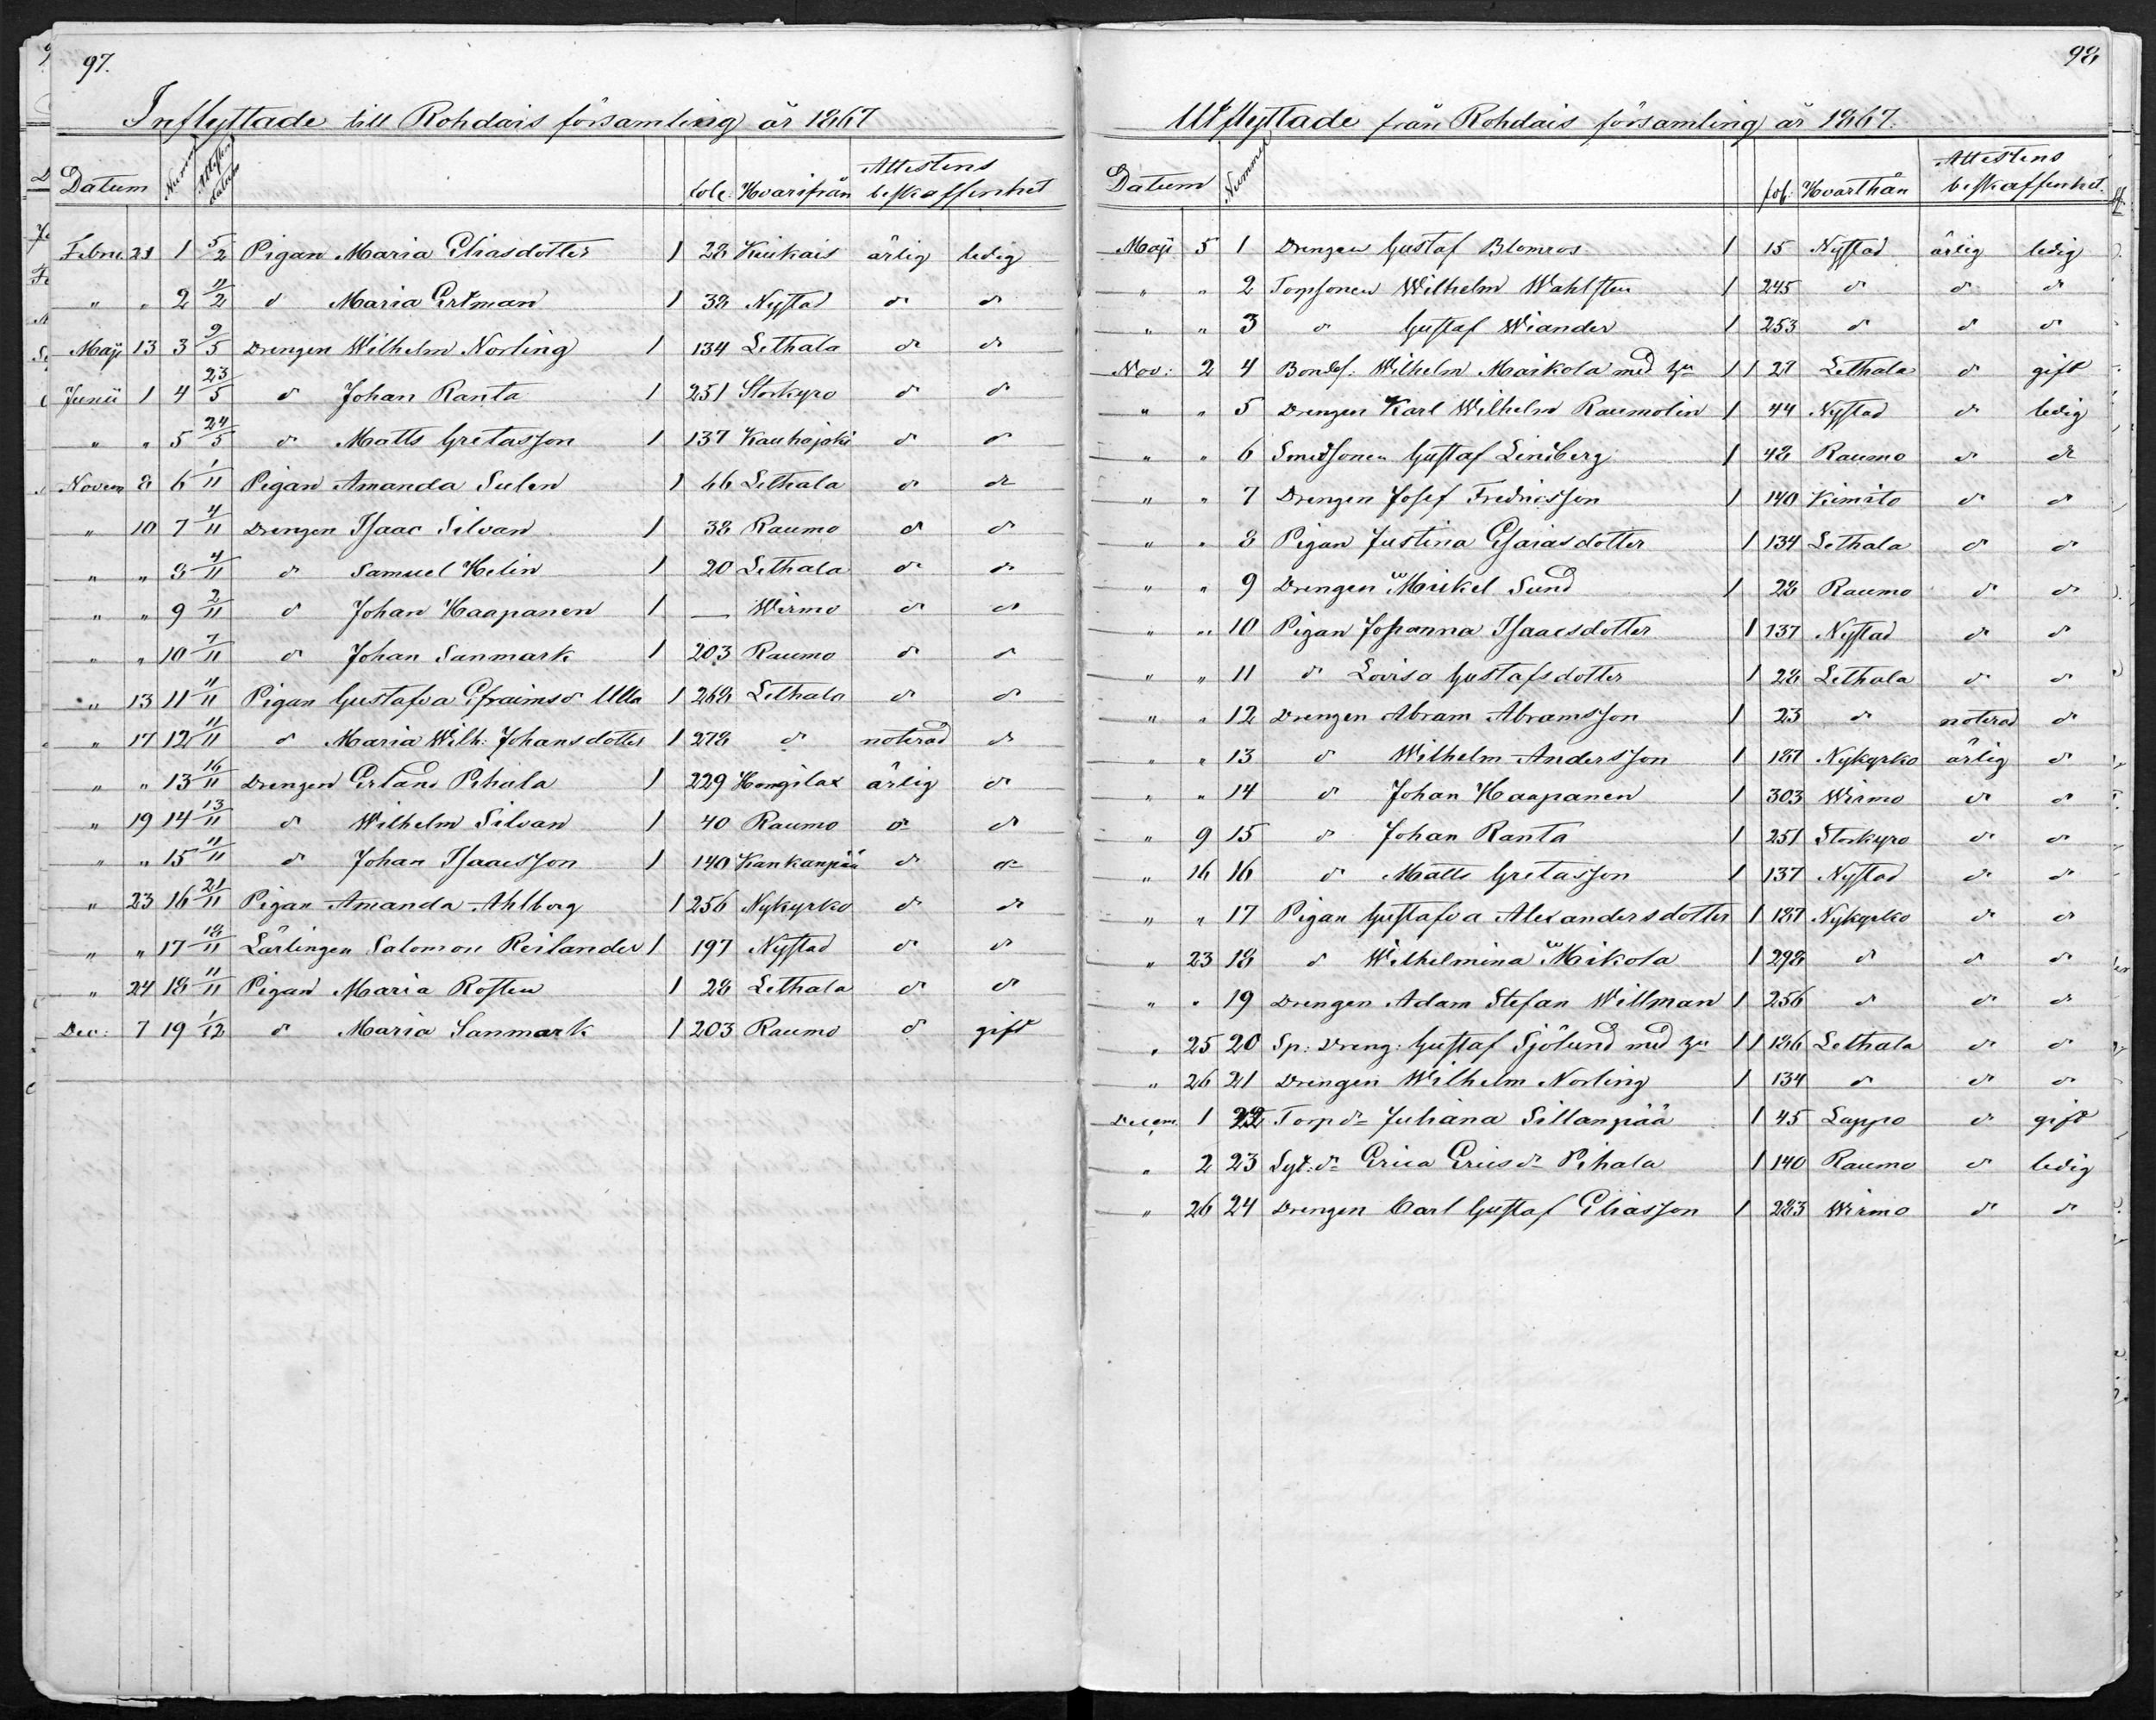 97.
Inflyttade till Rohdais församling år 1867
Datum Nummer Attestens datum fol: Hvarifrån Attestens beskaffenhet
Febru. 21 1 5/2 Pigan Maria Eliasdotter 1 28 Kiukais ärlig ledig
" " 2 11/2 d:o Maria Ertman 1 38 Nystad d:o d:o
Maji 13 3 9/5 Drengen Wilhelm Norling 1 134 Lethala d:o d:o
Junii 1 4 23/5 d:o Johan Ranta 1 251 Storkyro d:o d:o
" " 5 24/5 d:o Matts Gretasson 1 137 Kauhajoki d:o d:o
Novem 8 6 1/11 Pigan Amanda Sulen 1 46 Lethala d:o d:o
" 10 7 4/11 Drengen Isaac Silvan 1 38 Raumo d:o d:o
" " 8 4/11 d:o Samuel Helin 1 20 Lethala d:o d:o
" " 9 2/11 d:o Johan Haapanen 1 — Wirmo d:o d:o
" " 10 7/11 d:o Johan Sanmark 1 203 Raumo d:o d:o
" 13 11 11/11 Pigan Gustafva Efraimsd:r Ulla 1 268 Lethala d:o d:o
" 17 12 11/11 d:o Maria Wilh: Johansdotter 1 278 d:o noterad d:o
" " 13 16/11 Drengen Erland Pihala 1 229 Hongilax ärlig d:o
" 19 14 13/11 d:o Wilhelm Silvan 1 40 Raumo d:o d:o
" " 15 11/11 d:o Johan Isacsson 1 140 Kankanpää d:o d:o
" 23 16 21/11 Pigan Amanda Ahlborg 1 256 Nykyrko d:o d:o
" " 17 18/11 Lärlingen Salomon Reilander 1 197 Nystad d:o d:o
" 24 18 11/11 Pigan Maria Rosten 1 28 Lethala d:o d:o
Dec: 7 19 1/12 d:o Maria Sanmark 1 203 Raumo d:o gift
98
Utflyttade från Rohdais församling år 1867.
Datum Nummer fol: Hvarthän Attestens beskaffenhet.
Maji 5 1 Drengen Gustaf Blomros 1 15 Nystad ärlig ledig
" " 2 Torpsonen Wilhelm Wahlsten 1 245 d:o d:o d:o
" " 3 d:o Gustaf Wiander 1 253 d:o d:o d:o
Nov: 2 4 Bondes: Wilhelm Maikola med hu 1 1 27 Lethala d:o gift
" " 5 Drengen Karl Wilhelm Raumolin 1 44 Nystad d:o ledig
" " 6 Smedsonen Gustaf Lindberg 1 48 Raumo d:o d:o
" " 7 Drengen Josef Fredricsson 1 140 Kimito d:o d:o
" " 8 Pigan Justina Esaiasdotter 1 134 Lethala d:o d:o
" " 9 Drengen Mickel Sund 1 28 Raumo d:o d:o
" " 10 Pigan Johanna Isaacsdotter 1 137 Nystad d:o d:o
" " 11 d:o Lovisa Gustafsdotter 1 28 Lethala d:o d:o
" " 12 Drengen Abram Abramsson 1 23 d:o noterad d:o
" " 13 d:o Wilhelm Andersson 1 187 Nykyrko ärlig d:o
" " 14 d:o Johan Haapanen 1 303 Wirmo d:o d:o
" 9 15 d:o Johan Ranta 1 251 Storkyro d:o d:o
" 16 16 d:o Matts Gretasson 1 137 Nystad d:o d:o
" " 17 Pigan Gustafva Alexandersdotter 1 187 Nykyrko d:o d:o
" 23 18 d:o Wilhelmina Mikola 1 298 d:o d:o d:o
" " 19 Drengen Adam Stefan Willman 1 256 d:o d:o d:o
" 25 20 Sp: Dreng: Gustaf Sjölund med hu 1 1 186 Lethala d:o d:o
" 26 21 Drengen Wilhelm Norling 1 134 d:o d:o d:o
Decem. 1 22 Torpd:r Juliana Sillanpää 1 45 Lappo d:o gift
" 2 23 Syt:d:r Erica Ericsd:r Pihala 1 140 Raumo d:o ledig
" 26 24 Drengen Carl Gustaf Eliasson 1 283 Wirmo d:o d:o